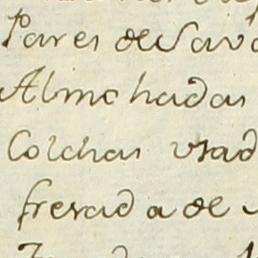 Pares de Sava
Almohadas
Colchas usad
fresada de